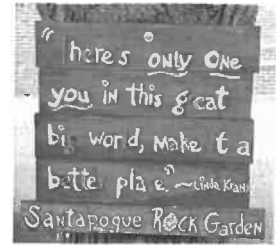 "here's only one
you in this g eat
bi world, make t a
bette pla e." ~Linda Kranz
Santapogue Rock Garden